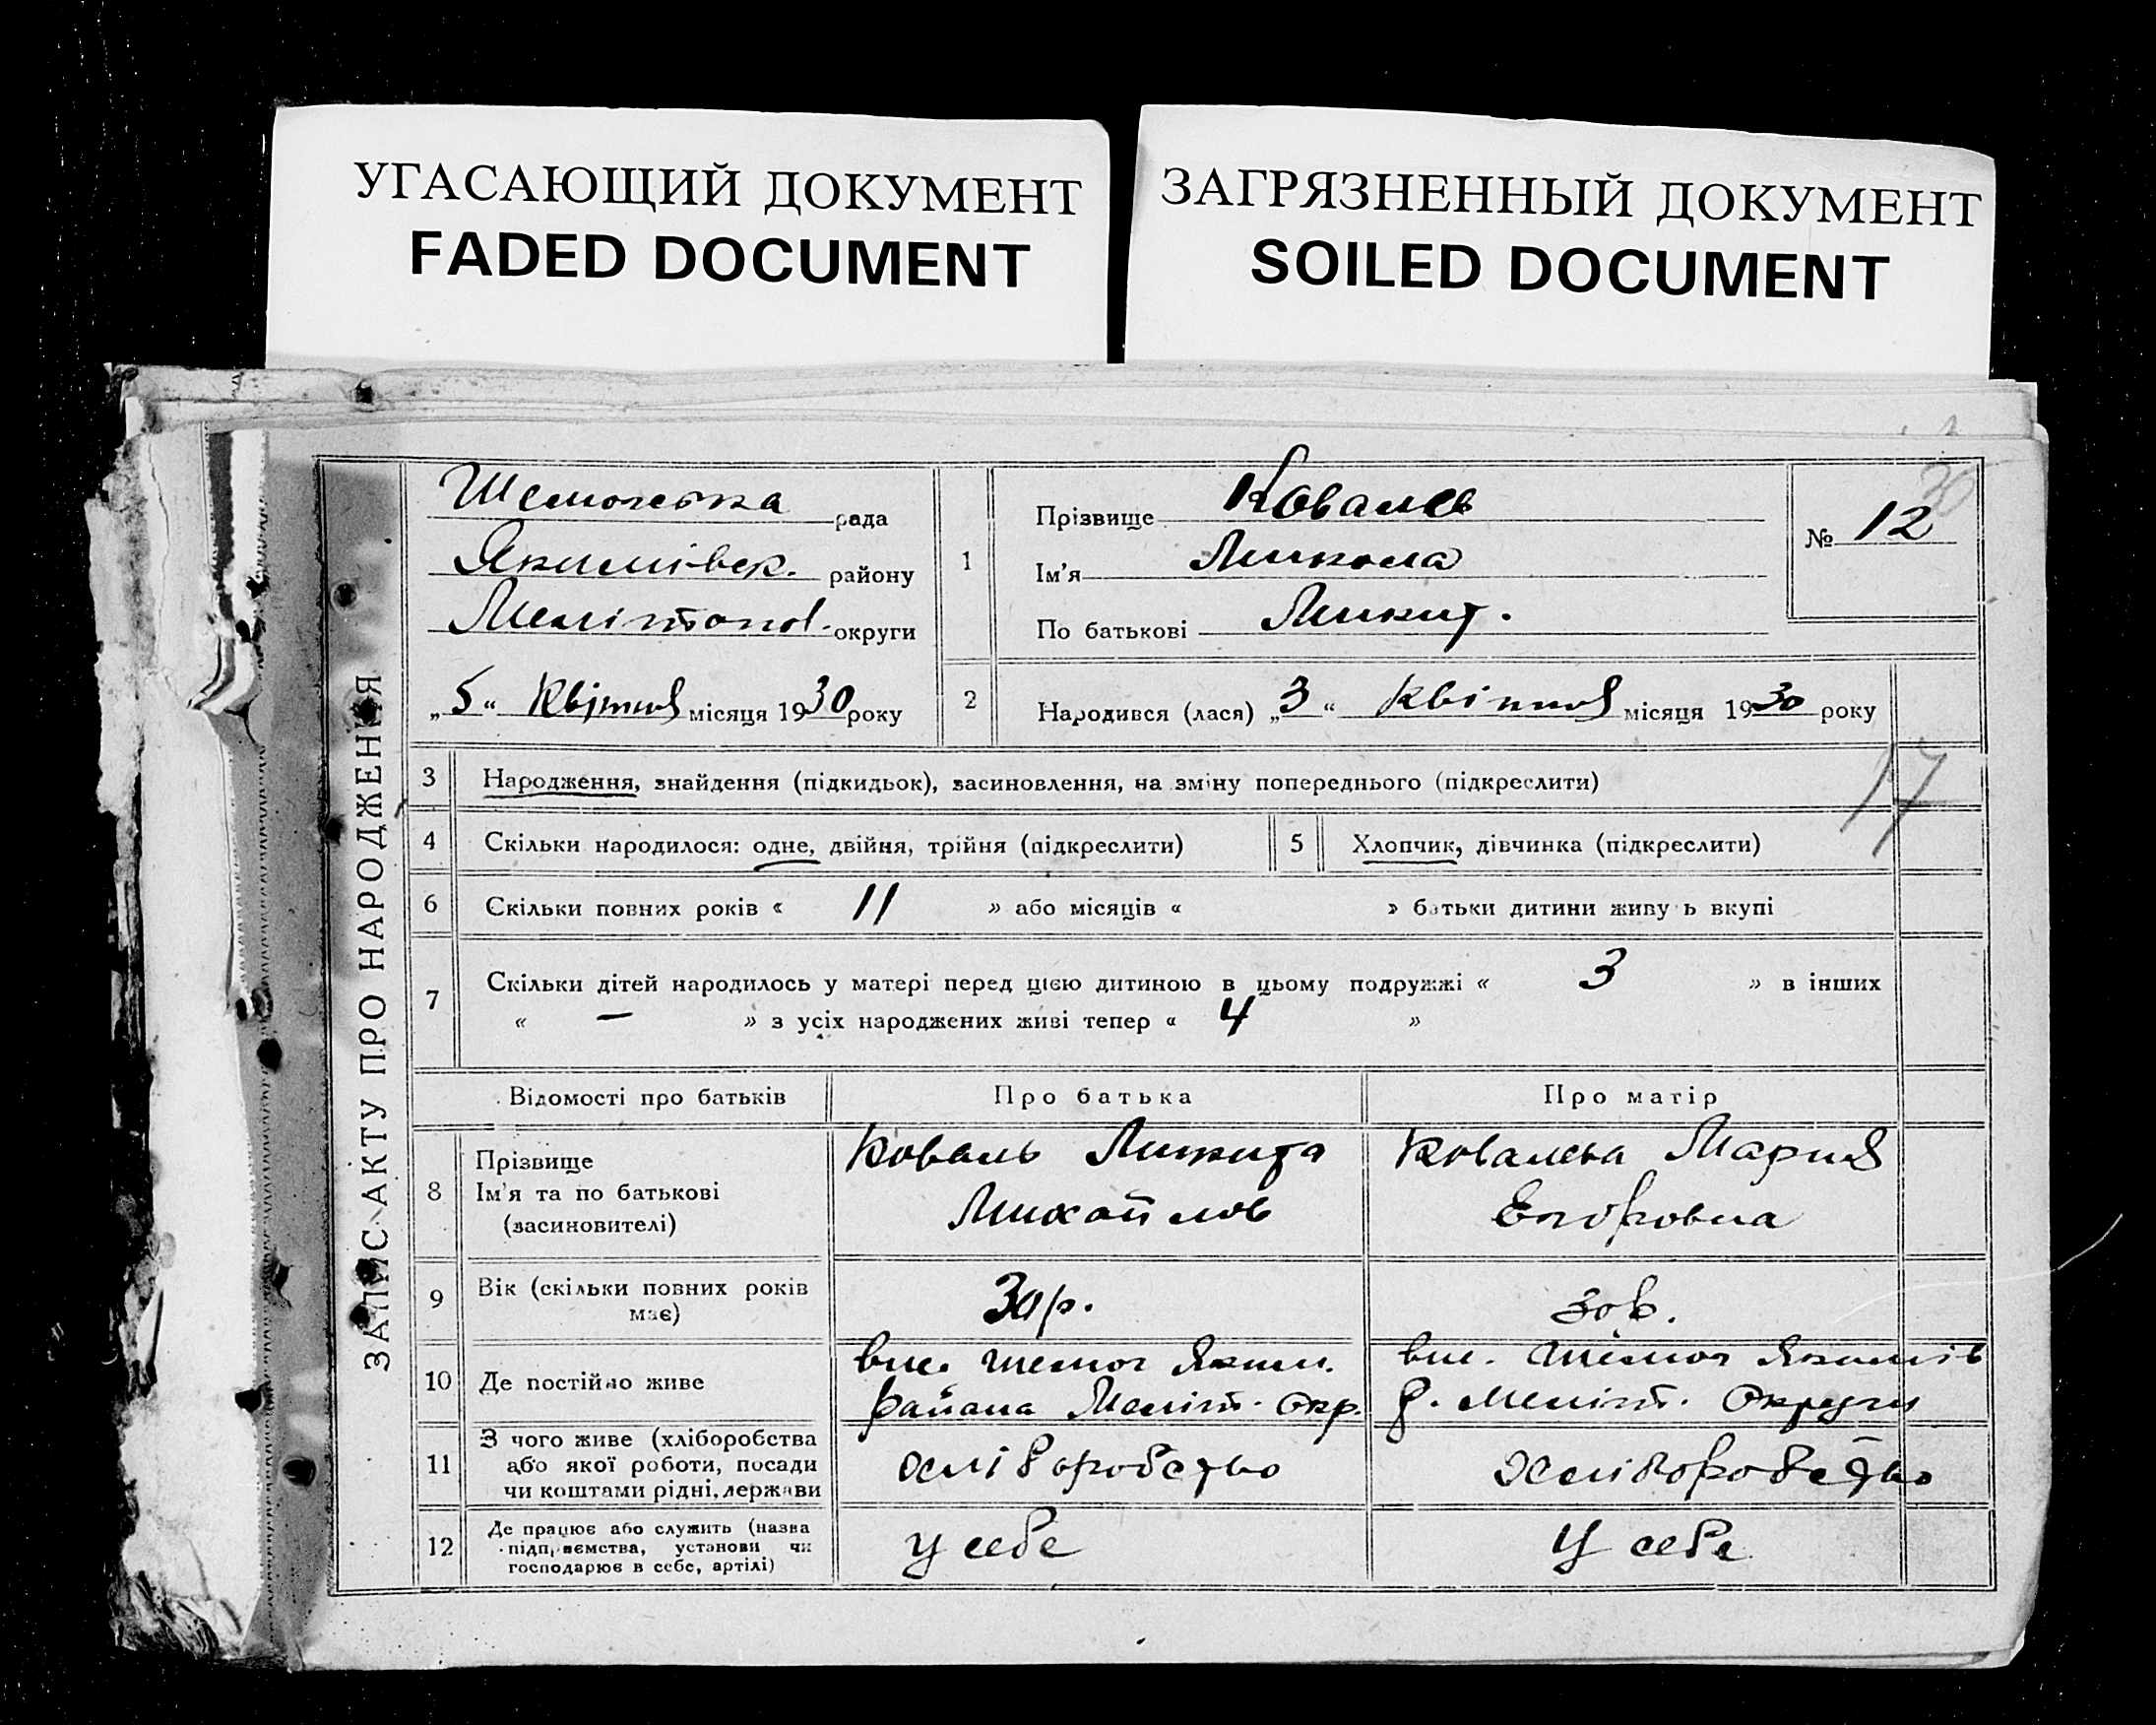 УГАСАЮЩИЙ ДОКУМЕНТ
FADED DOCUMENT
ЗАГРЯЗНЕННЫЙ ДОКУМЕНТ
SOILED DOCUMENT
ЗАПИС АКТУ ПРО НАРОДЖЕННЯ
рада
Якимівск. району
Мелітопол. округи
„5“ Квітня місяця 1930 року
1
Прізвище Коваль
Ім'я Микола
По батькові Микит.
№ 12
30
2
Народився (лася) „3“ Квітня місяця 1930 року
17
3 Народження, знайдення (підкидьок), засиновлення, на зміну попереднього (підкреслити)
4 Скільки народилося: одне, двійня, трійня (підкреслити)
5 Хлопчик, дівчинка (підкреслити)
6 Скільки повних років « 11 » або місяців « » батьки дитини живуть вкупі
7 Скільки дітей народилось у матері перед цією дитиною в цьому подружжі « 3 » в інших
« — » з усіх народжених живі тепер « 4 »
Відомості про батьків
Про батька
Про матір
8
Прізвище
Ім'я та по батькові
(засиновителі)
Коваль Микита
Михайлов
Ковалева Мария
Егоровна
9
Вік (скільки повних років
має)
30 р.
30 р.
10 Де постійно живе
вис. Шемот Яким.
района Меліт. окр.
вис. Шемот Якимів
р. Меліт. Округи
11
З чого живе (хліборобства
або якої роботи, посади
чи коштами рідні, держави
хліборобство
хліборобство
12
Де працює або служить (назва
підприємства, установи чи
господарює в себе, артілі)
у себе
У себе